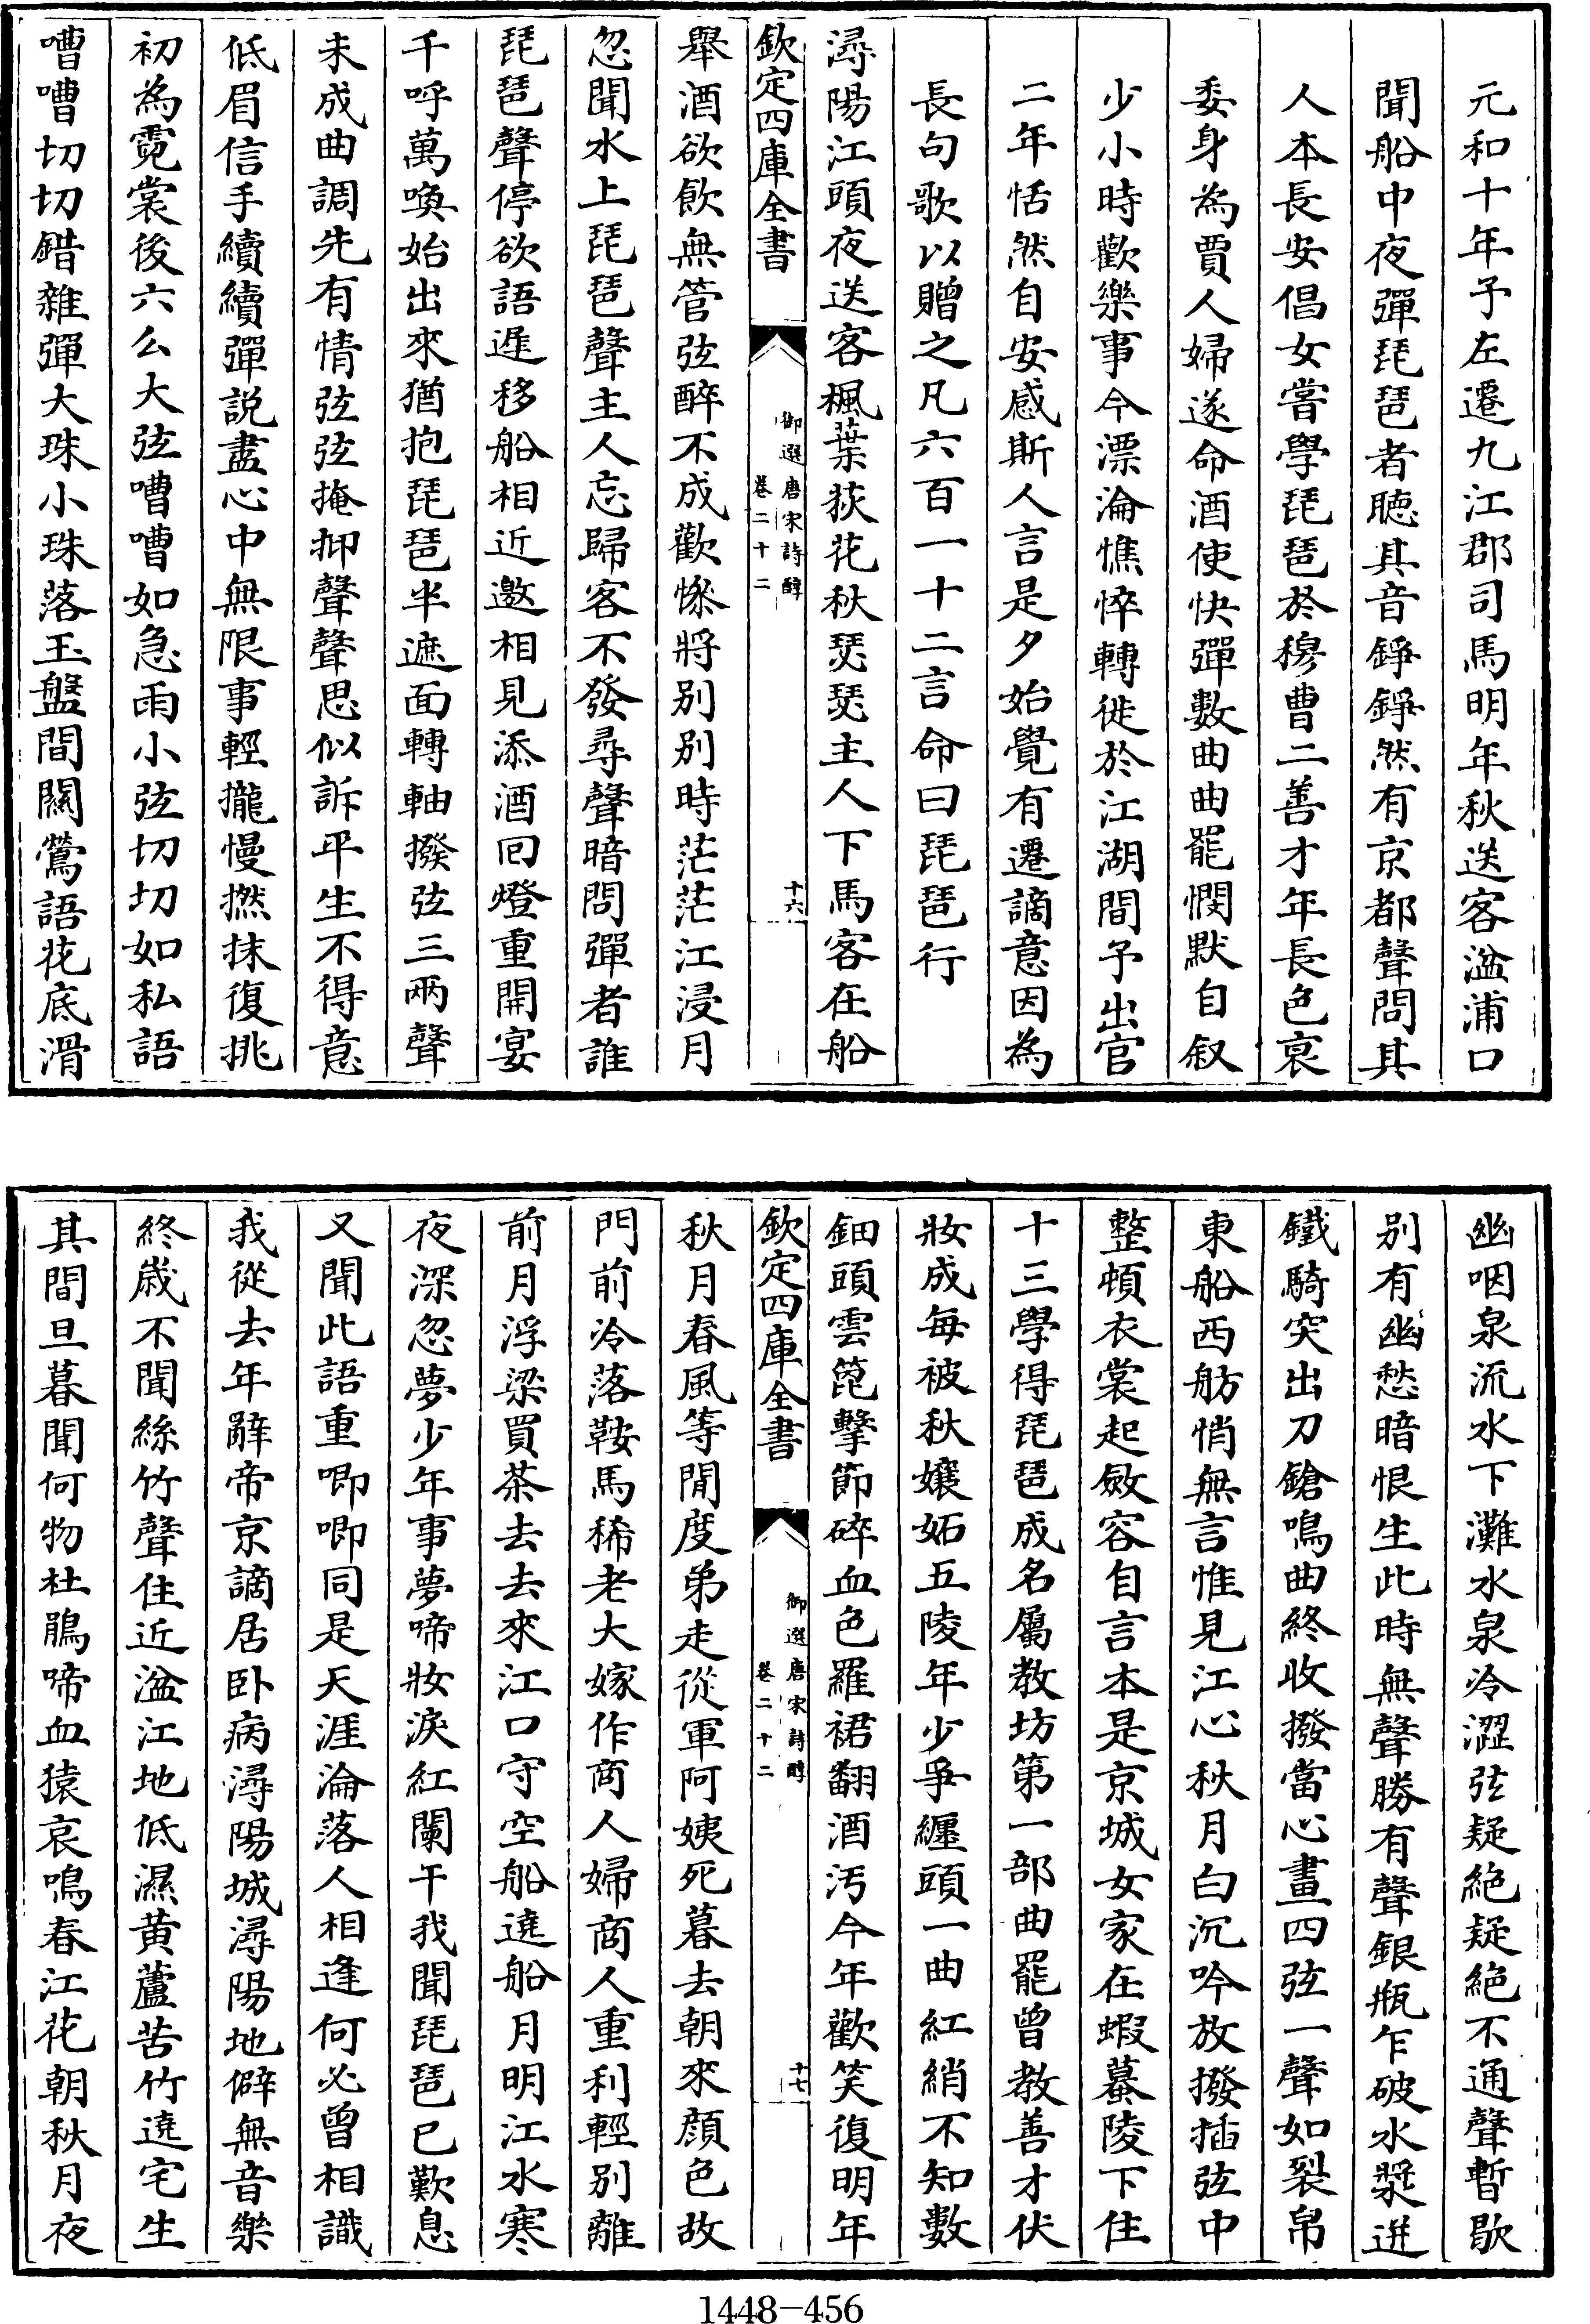 元和十年予左遷九江郡司馬明年秋送客湓浦口
聞船中夜彈琵琶者聽其音錚錚然有京都聲問其
人本長安倡女嘗學琵琶於穆曹二善才年長色衰
委身為賈人婦遂命酒使快彈數曲曲罷憫默自叙
少小時歡樂事今漂淪憔悴轉徙於江湖間予出官
二年恬然自安感斯人言是夕始覺有遷謫意因為
長句歌以贈之凡六百一十二言命曰琵琶行
潯陽江頭夜送客楓葉荻花秋瑟瑟主人下馬客在船
欽定四庫全書
御選唐宋詩醇
卷二十二
十六
舉酒欲飲無管弦醉不成歡慘將別別時茫茫江浸月
忽聞水上琵琶聲主人忘歸客不發尋聲暗問彈者誰
琵琶聲停欲語遲移船相近邀相見添酒回燈重開宴
千呼萬喚始出來猶抱琵琶半遮面轉軸撥弦三兩聲
未成曲調先有情弦弦掩抑聲聲思似訴平生不得意
低眉信手續續彈説盡心中無限事輕攏慢撚抹復挑
初為霓裳後六么大弦嘈嘈如急雨小弦切切如私語
嘈嘈切切錯雜彈大珠小珠落玉盤間關鶯語花底滑
幽咽泉流水下灘水泉冷澀弦疑絶疑絶不通聲暫歇
別有幽愁暗恨生此時無聲勝有聲銀瓶乍破水漿迸
鐵騎突出刀鎗鳴曲終收撥當心畫四弦一聲如裂帛
東船西舫悄無言惟見江心秋月白沉吟放撥插弦中
整頓衣裳起斂容自言本是京城女家在蝦蟇陵下住
十三學得琵琶成名屬教坊第一部曲罷曾教善才伏
妝成每被秋孃妬五陵年少爭纏頭一曲紅綃不知數
鈿頭雲篦擊節碎血色羅裙翻酒汚今年歡笑復明年
欽定四庫全書
御選唐宋詩醇
卷二十二
十七
秋月春風等閒度弟走從軍阿姨死暮去朝來顔色故
門前冷落鞍馬稀老大嫁作商人婦商人重利輕別離
前月浮梁買茶去去來江口守空船遶船月明江水寒
夜深忽夢少年事夢啼妝淚紅闌干我聞琵琶已歎息
又聞此語重唧唧同是天涯淪落人相逢何必曾相識
我從去年辭帝京謫居卧病潯陽城潯陽地僻無音樂
終歲不聞絲竹聲住近湓江地低濕黄蘆苦竹遶宅生
其間旦暮聞何物杜鵑啼血猿哀鳴春江花朝秋月夜
1448-456